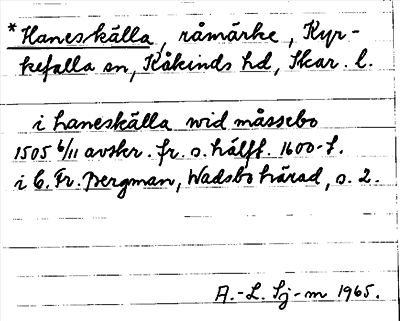 *Haneskälla, råmärke, Kyr-
kefalla sn, Kåkinds hd, Skar. l.
i haneskälla wid måssebo
1505 6/11 avskr. fr. s. hälft. 1600-t.
i C. Fr. Bergman, Wadsbo härad, s. 2.
A.-L. Sj-m 1965.